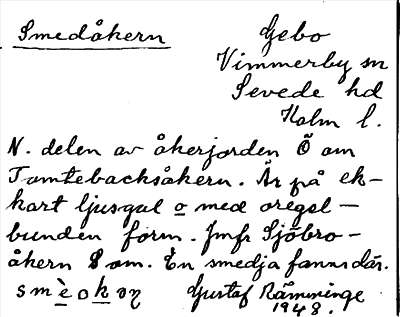 Smedåkern
Gebo
Vimmerby sn
Sevede hd
Kalm l.
N. delen av åkerjorden Ö om
Tomtebacksåkern. Är på ek-
kart ljusgul o med oregel-
bunden form. Jmfr Sjöbro-
åkern S om. En smedja fanns där.
smèokoŋ Gustaf Rämminge
1948.